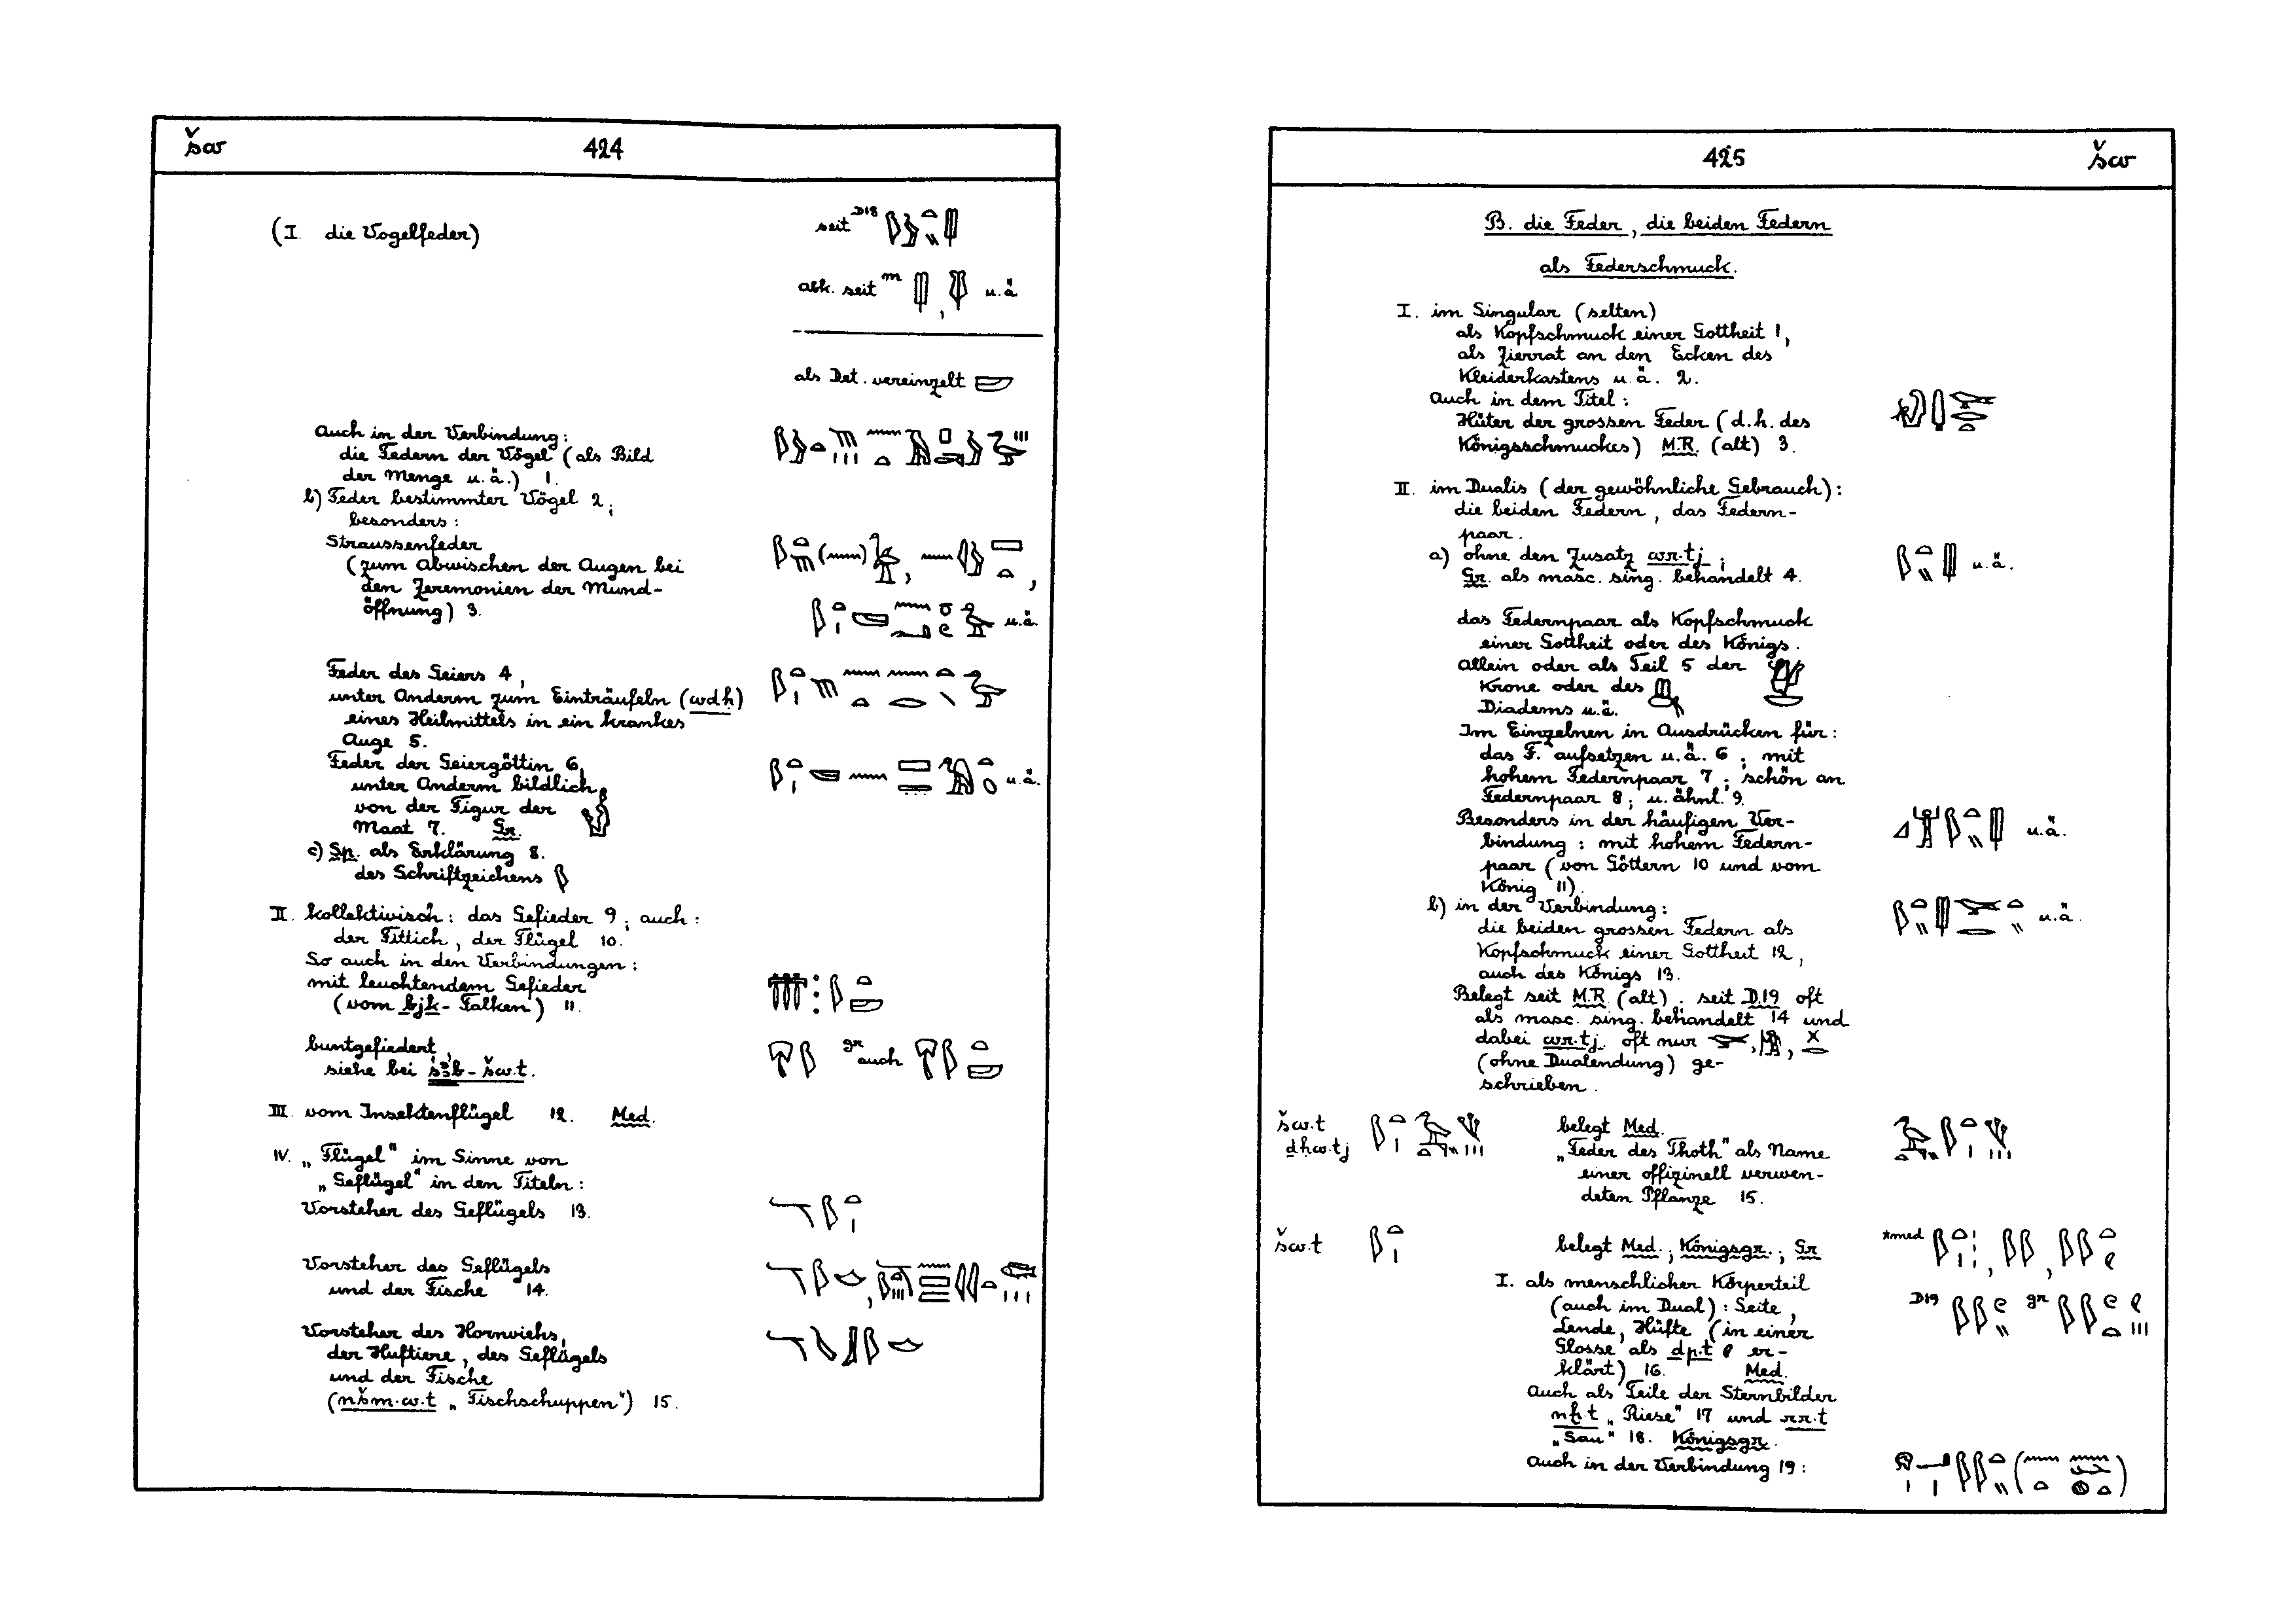 šw 424
(I. die Vogelfeder)
seit D18
abk. seit m , u.ä
als Det. vereinzelt
Auch in der Verbindung:
die Federn der Vögel (als Bild
der Menge u.ä.) 1.
b) Feder bestimmter Vögel 2;
besonders:
Straussenfeder
(zum Abwischen der Augen bei
den Zeremonien der Mund-
öffnung) 3.
u.ä.
Feder des Geiers 4,
unter Anderm zum Einträufeln (wdḥ)
eines Heilmittels in ein krankes
Auge 5.
Feder der Geiergöttin 6,
u.ä.
unter Anderm bildlich
von der Figur der
Maat 7. Gr.
c) Sp. als Erklärung 8.
des Schriftzeichens
II. kollektivisch: das Gefieder 9; auch:
der Fittich, der Flügel 10.
So auch in den Verbindungen:
mit leuchtendem Gefieder
(vom bjk-Falken) 11.
buntgefiedert,
gr auch
siehe bei sꜣb-šw.t.
III. vom Insektenflügel 12. Med.
IV. „Flügel" im Sinne von
„Geflügel" in den Titeln:
Vorsteher des Geflügels 13.
Vorsteher des Geflügels
und der Fische 14.
Vorsteher des Hornviehs,
der Huftiere, des Geflügels
und der Fische
(nšm.w.t „Fischschuppen") 15.
425 šw
B. die Feder, die beiden Federn
als Federschmuck.
I. im Singular (selten)
als Kopfschmuck einer Gottheit 1,
als Zierrat an den Ecken des
Kleiderkastens u.ä. 2.
Auch in dem Titel:
Hüter der grossen Feder (d.h. des
Königsschmuckes) M.R. (alt) 3.
II. im Dualis (der gewöhnliche Gebrauch):
die beiden Federn, das Federn-
paar.
a) ohne den Zusatz wr.tj;
u.ä.
Gr. als masc. sing. behandelt 4.
das Federnpaar als Kopfschmuck
einer Gottheit oder des Königs.
Allein oder als Teil 5 der
Krone oder des
Diadems u.ä.
Im Einzelnen in Ausdrücken für:
das F. aufsetzen u.ä. 6; mit
hohem Federnpaar 7; schön an
Federnpaar 8; u. ähnl. 9.
Besonders in der häufigen Ver-
u.ä.
bindung: mit hohem Federn-
paar (von Göttern 10 und vom
König 11).
b) in der Verbindung:
u.ä.
die beiden grossen Federn als
Kopfschmuck einer Gottheit 12,
auch des Königs 13.
Belegt seit M.R. (alt). seit D.19 oft
als masc. sing. behandelt 14 und
dabei wr.tj oft nur
(ohne Dualendung) ge-
schrieben.
šw.t
ḏḥw.tj
belegt Med.
„Feder des Thoth" als Name
einer offizinell verwen-
deten Pflanze 15.
šw.t belegt Med.; Königsgr.; Gr. *med
I. als menschlicher Körperteil
(auch im Dual): Seite,
D19 gr
Lende, Hüfte (in einer
Glosse als dp.t er-
klärt) 16. Med.
Auch als Teile der Sternbilder
nḫ.t „Riese" 17 und rr.t
„Sau" 18. Königsgr.
Auch in der Verbindung 19: